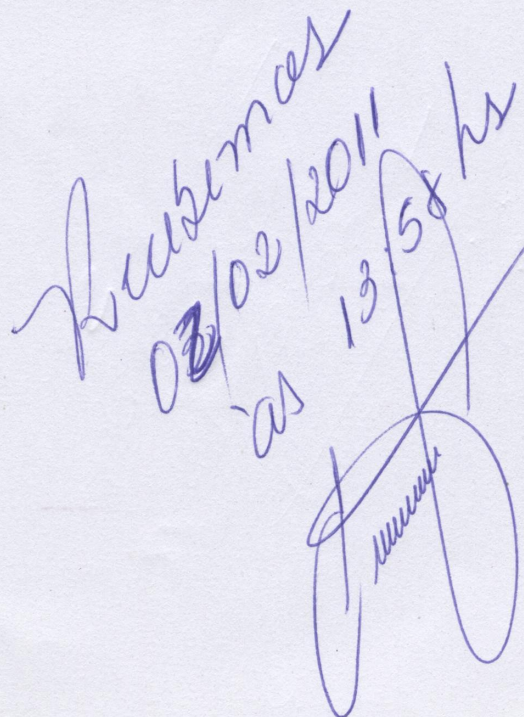 Recebemos
03/02/2011
às 13:58 hs